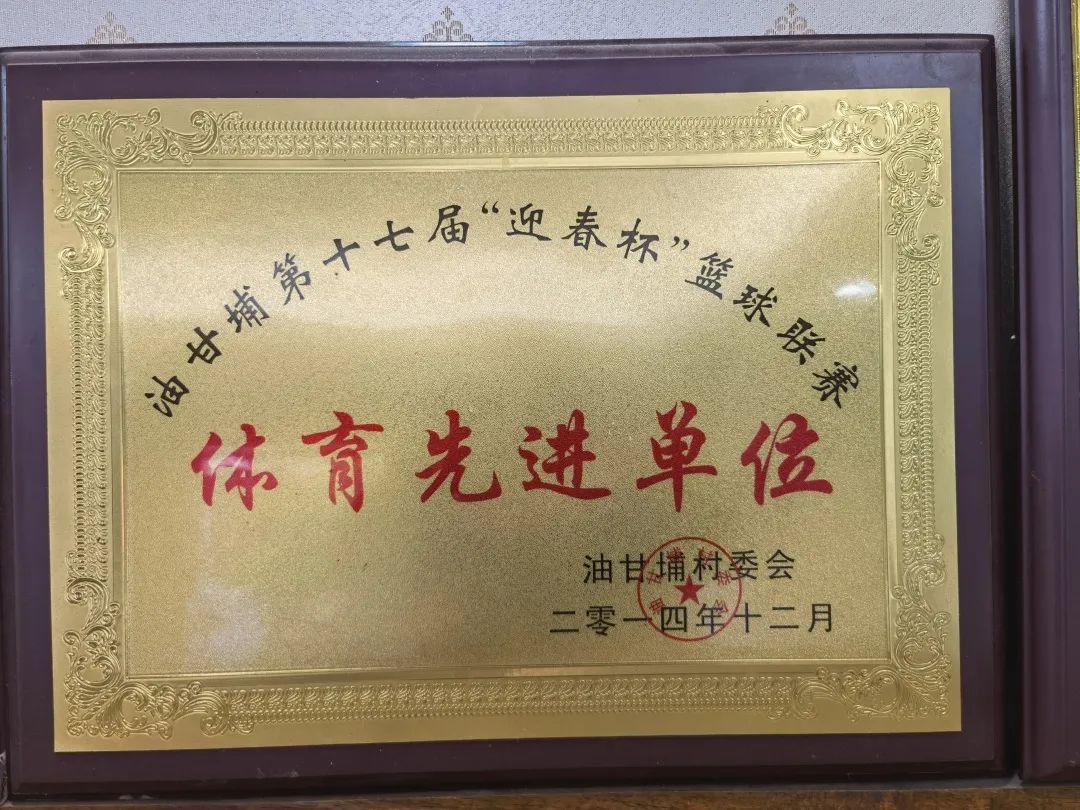 油甘埔第十七届“迎春杯”篮球联赛
体育先进单位
油甘埔村委会
二零一四年十二月